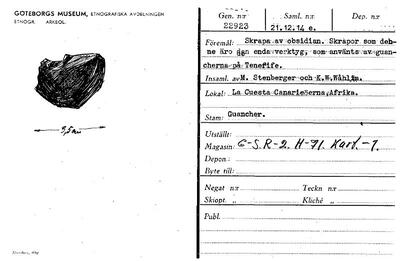 GÖTEBORGS MUSEUM, ETNOGRAFISKA AVDELNINGEN
ETNOGR. ARKEOL.
3,5 cm
Gen. n:r Saml. n:r Dep. n:r
22923 21.12.14 e.
Föremål: Skrapa av obsidian. Skrapor som den-
na äro den enda verktyg, som använts av guan-
cherna på Tenerife.
Insaml. av M. Stenberger och K.W.Wåhlin.
Lokal: La Cuesta Canarieöerna, Afrika.
Stam: Guancher.
Utställt:
Magasin: G-S.R-2. H-71. Kart.-1.
Depon:
Byte till:
Negat n:r Teckn n:r
Skiopt. „ Kliché „
Publ.